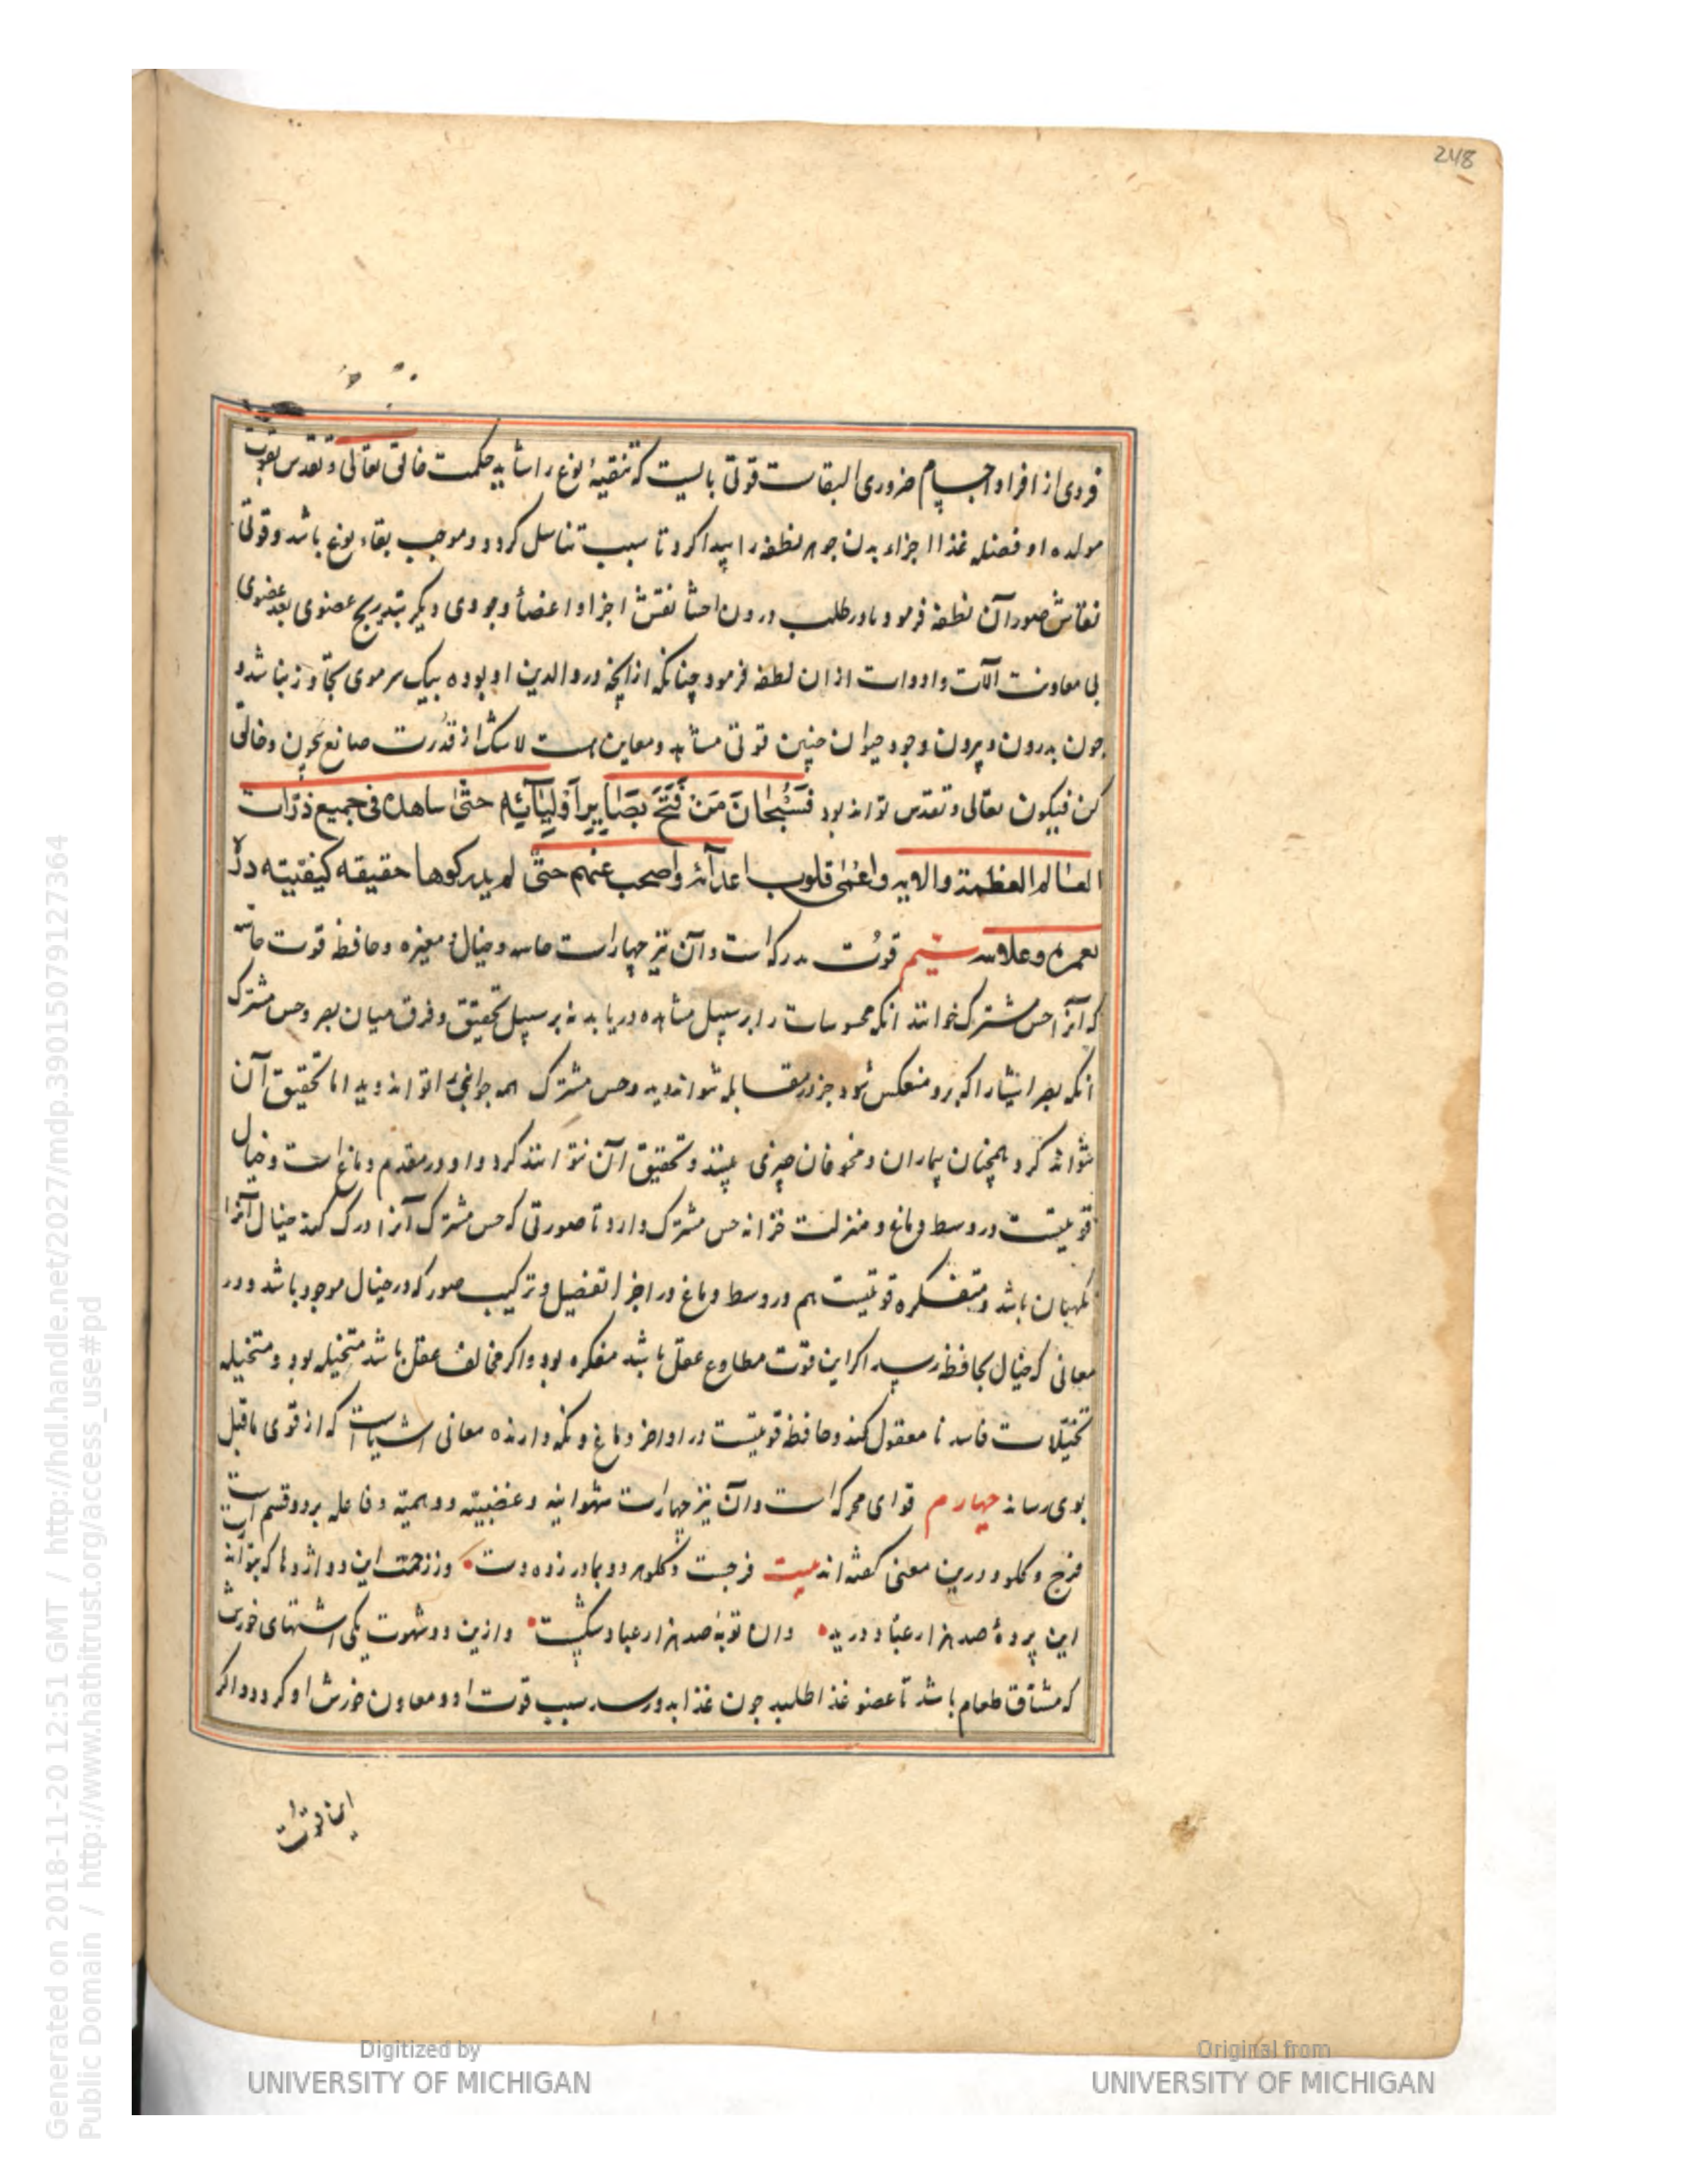 248
فردی از افراد اجسام ضروری البقاست قوتی بایست که تنقیهٔ نوع را شاید حکمت خالق تعالی و تقدس بقوت
مولده او فضله غذا اجزاء بدن جوهر نطفه را پیدا کرد تا سبب تناسل کردد و موجب بقاء نوع باشد و قوتی
نقاش صور آن نطفه فرمود تا در طلب درون احشا نقش اجزا و اعضأ وجودی دیکر بتدریج عضوی بعد عضوی
بی معاونت آلات و ادوات ازان نطفه فرمود چنانکه از آنچه در والدین او بوده بیک سر موی تجاوز نباشد و
چون بدرون و بیرون وجود حیوان چنین قوتی مشاهد و معاین است لاشک از قدرت صانع بچون و خالق
کن فیکون تعالی و تقدس تواند بود فَسُبْحَانَ مَنْ فَتَحَ بَصَایِرَ اَوْلِیَآئِهِ حتّی شاهده فی جمیع ذرّات
العالم العظمة والابهه واعمٰی قلوب اعدآئه واصحب عنهم حتّی لم یدرکوها حقیقه کیفیته
سیم قوّت مدرکه است و آن نیز چهار است حاسه و خیال و ممیزه و حافظه قوت حاسّه
که آنرا حس مشترک خوانند آنکه محسوسات را بر سبیل مشاهده دریابد نه بر سبیل تحقیق و فرق میان بصر و حس مشترک
آنکه بصر اشیا را که برو منعکس شود جز در مقابله نتواند دید و حس مشترک همه جوانب را تواند دید اما تحقیق آن
نتواند کرد همچنان بیماران و مخوفان چیزی بینند و تحقیق آن نتوانند کرد و او در مقدم دماغ است و خیال
قوتیست در وسط دماغ و منزلت خزانه حس مشترک دارد تا صورتی که حس مشترک آنرا ادرک کند خیال آنرا
نکهبان باشد و متفکره قوتیست هم در وسط دماغ در اجزا تفصیل و ترکیب صور که در خیال موجود باشد و در
معانی که خیال بحافظه رسید اکر این قوت مطاوع عقل باشد مفکره بود و اکر مخالف عقل باشد متخیله بود و متخیله
تخیّلات فاسد نا معقول کند و حافظه قوتیست در اواخر دماغ و نکه دارنده معانی اشیاست که از قوی ماقبل
بوی رساند چهارم قوای محرکه است و آن نیز چهار است شهوانیه و غضبیّه و وهمیّه و فاعله بر دو قسم است
فرج و کلو و درین معنی کفته اند بیت فرجت و کلو هر دو بمادر زده دست وز زحمت این دو اژدها که بتواند
این پردهٔ صد هزار عبّاد درید وان توبهٔ صد هزار عباد شکست و ازین دو شهوت یکی اشتهای خورش
که مشتاق طعام باشد تا عضو غذا طلبد چون غذا بدو رسد سبب قوت او و معاون خورش او کردد و اکر
این قوت
Generated on 2018-11-20 12:51 GMT / http://hdl.handle.net/2027/mdp.39015079127364
Public Domain / http://www.hathitrust.org/access_use#pd
Digitized by
UNIVERSITY OF MICHIGAN
Original from
UNIVERSITY OF MICHIGAN